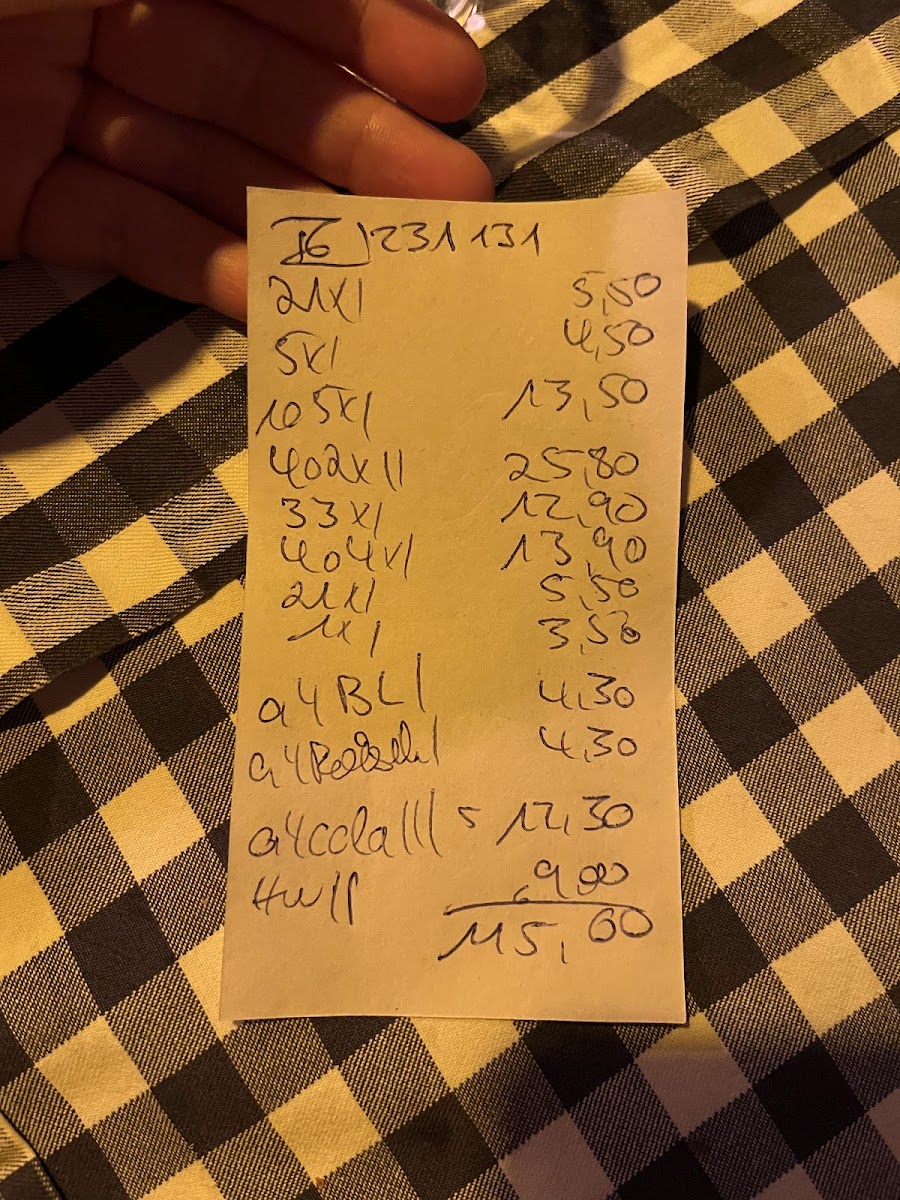 I6 231 131
21x| 5,50
5x| 4,50
105x| 13,50
402x|| 25,80
33x| 12,90
404x| 13,90
21x| 5,50
1x| 3,50
a4BL| 4,30
a4 4,30
a4cola||| 12,30
HW|| 9,00
115,00